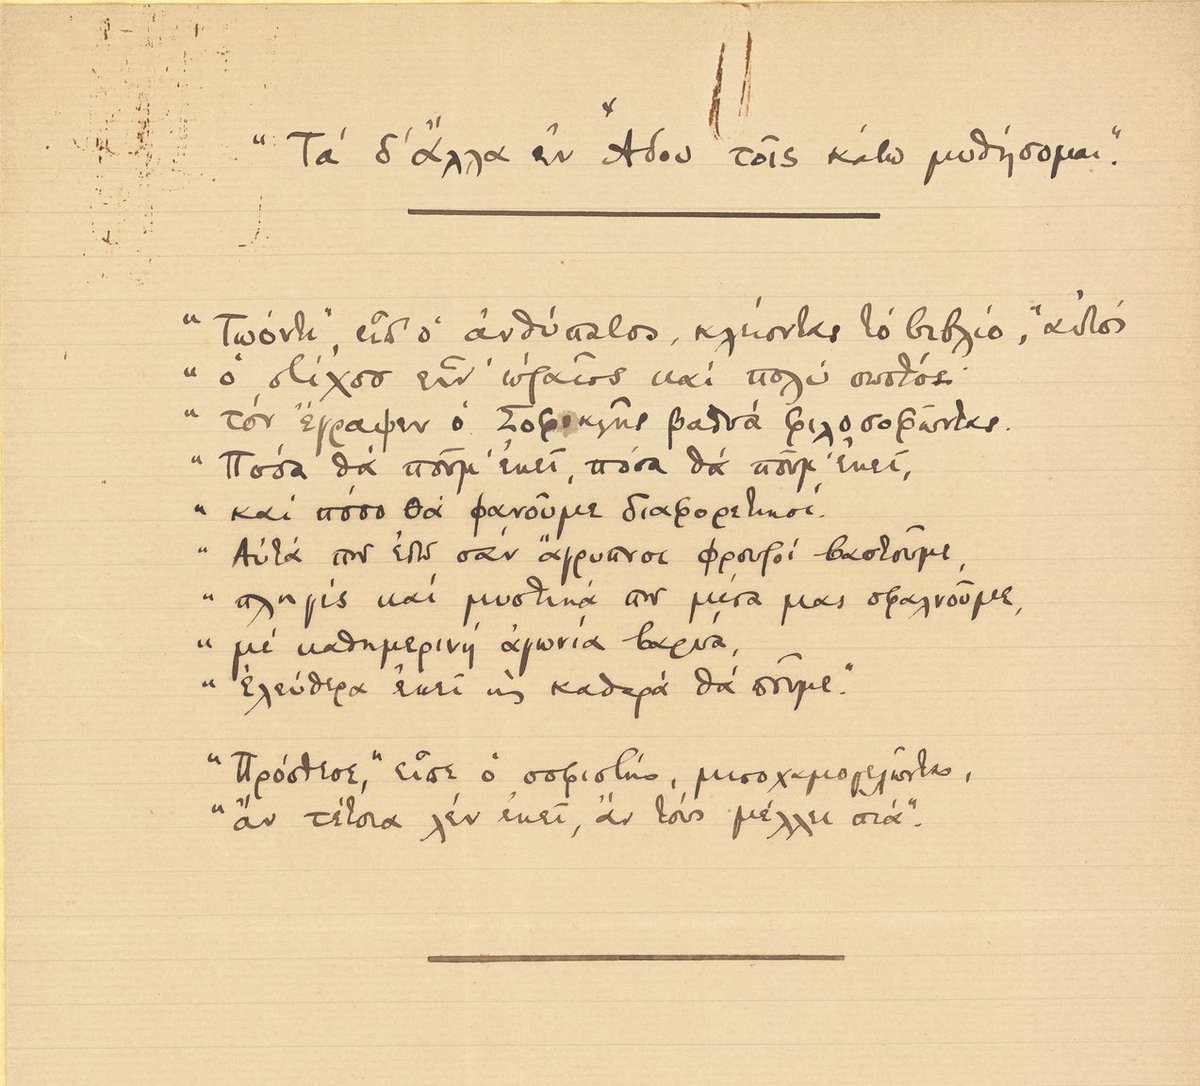 “Τά δ’ ἄλλα ἐν Ἅδου τοῖς κάτω μυθήσομαι”.
“Τωόντι”, εἶπ’ ὁ ἀνθύπατος, κλείοντας τό βιβλίο, “αὐτός
“ὁ στίχος εἶν’ ὡραῖος καί πολύ σωστός·
“τόν ἔγραψεν ὁ Σοφοκλῆς βαθυά φιλοσοφῶντας.
“Πόσα θά ποῦμ’ ἐκεῖ, πόσα θά ποῦμ’ ἐκεῖ,
“καί πόσο θά φανοῦμε διαφορετικοί.
“Αὐτά που ἐδῶ σάν ἄγρυπνοι φρουροί βαστοῦμε,
“πληγές καί μυστικά που μέσα μας σφαλνοῦμε,
“μέ καθημερινή ἀγωνία βαρυά,
“ἐλεύθερα ἐκεῖ κ̀ καθαρά θά ποῦμε.”
“Πρόσθεσε,” εἶπε ὁ σοφιστής, μισοχαμογελῶντας,
“ἄν τέτοια λέν ἐκεῖ, ἄν τούς μέλλει πιά”.